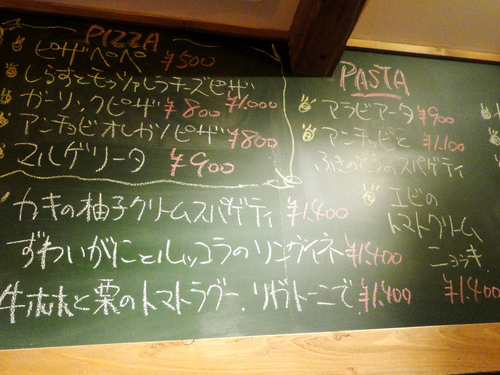 PIZZA
ピザペペ ¥500
しらすとモッツァレラチーズピザ ¥1,000
ガーリックピザ ¥800
アンチョビオレガノピザ ¥800
マルゲリータ ¥900
カキの柚子クリームスパゲティ ¥1,400
ずわいがにとルッコラのリングイネ ¥1,400
牛ホホと栗のトマトラグー、リガトーニで ¥1,400
PASTA
アラビアータ ¥900
アンチョビと ¥1,100
ふきのとうのスパゲティ
エビの
トマトクリーム
ニョッキ
¥1,400